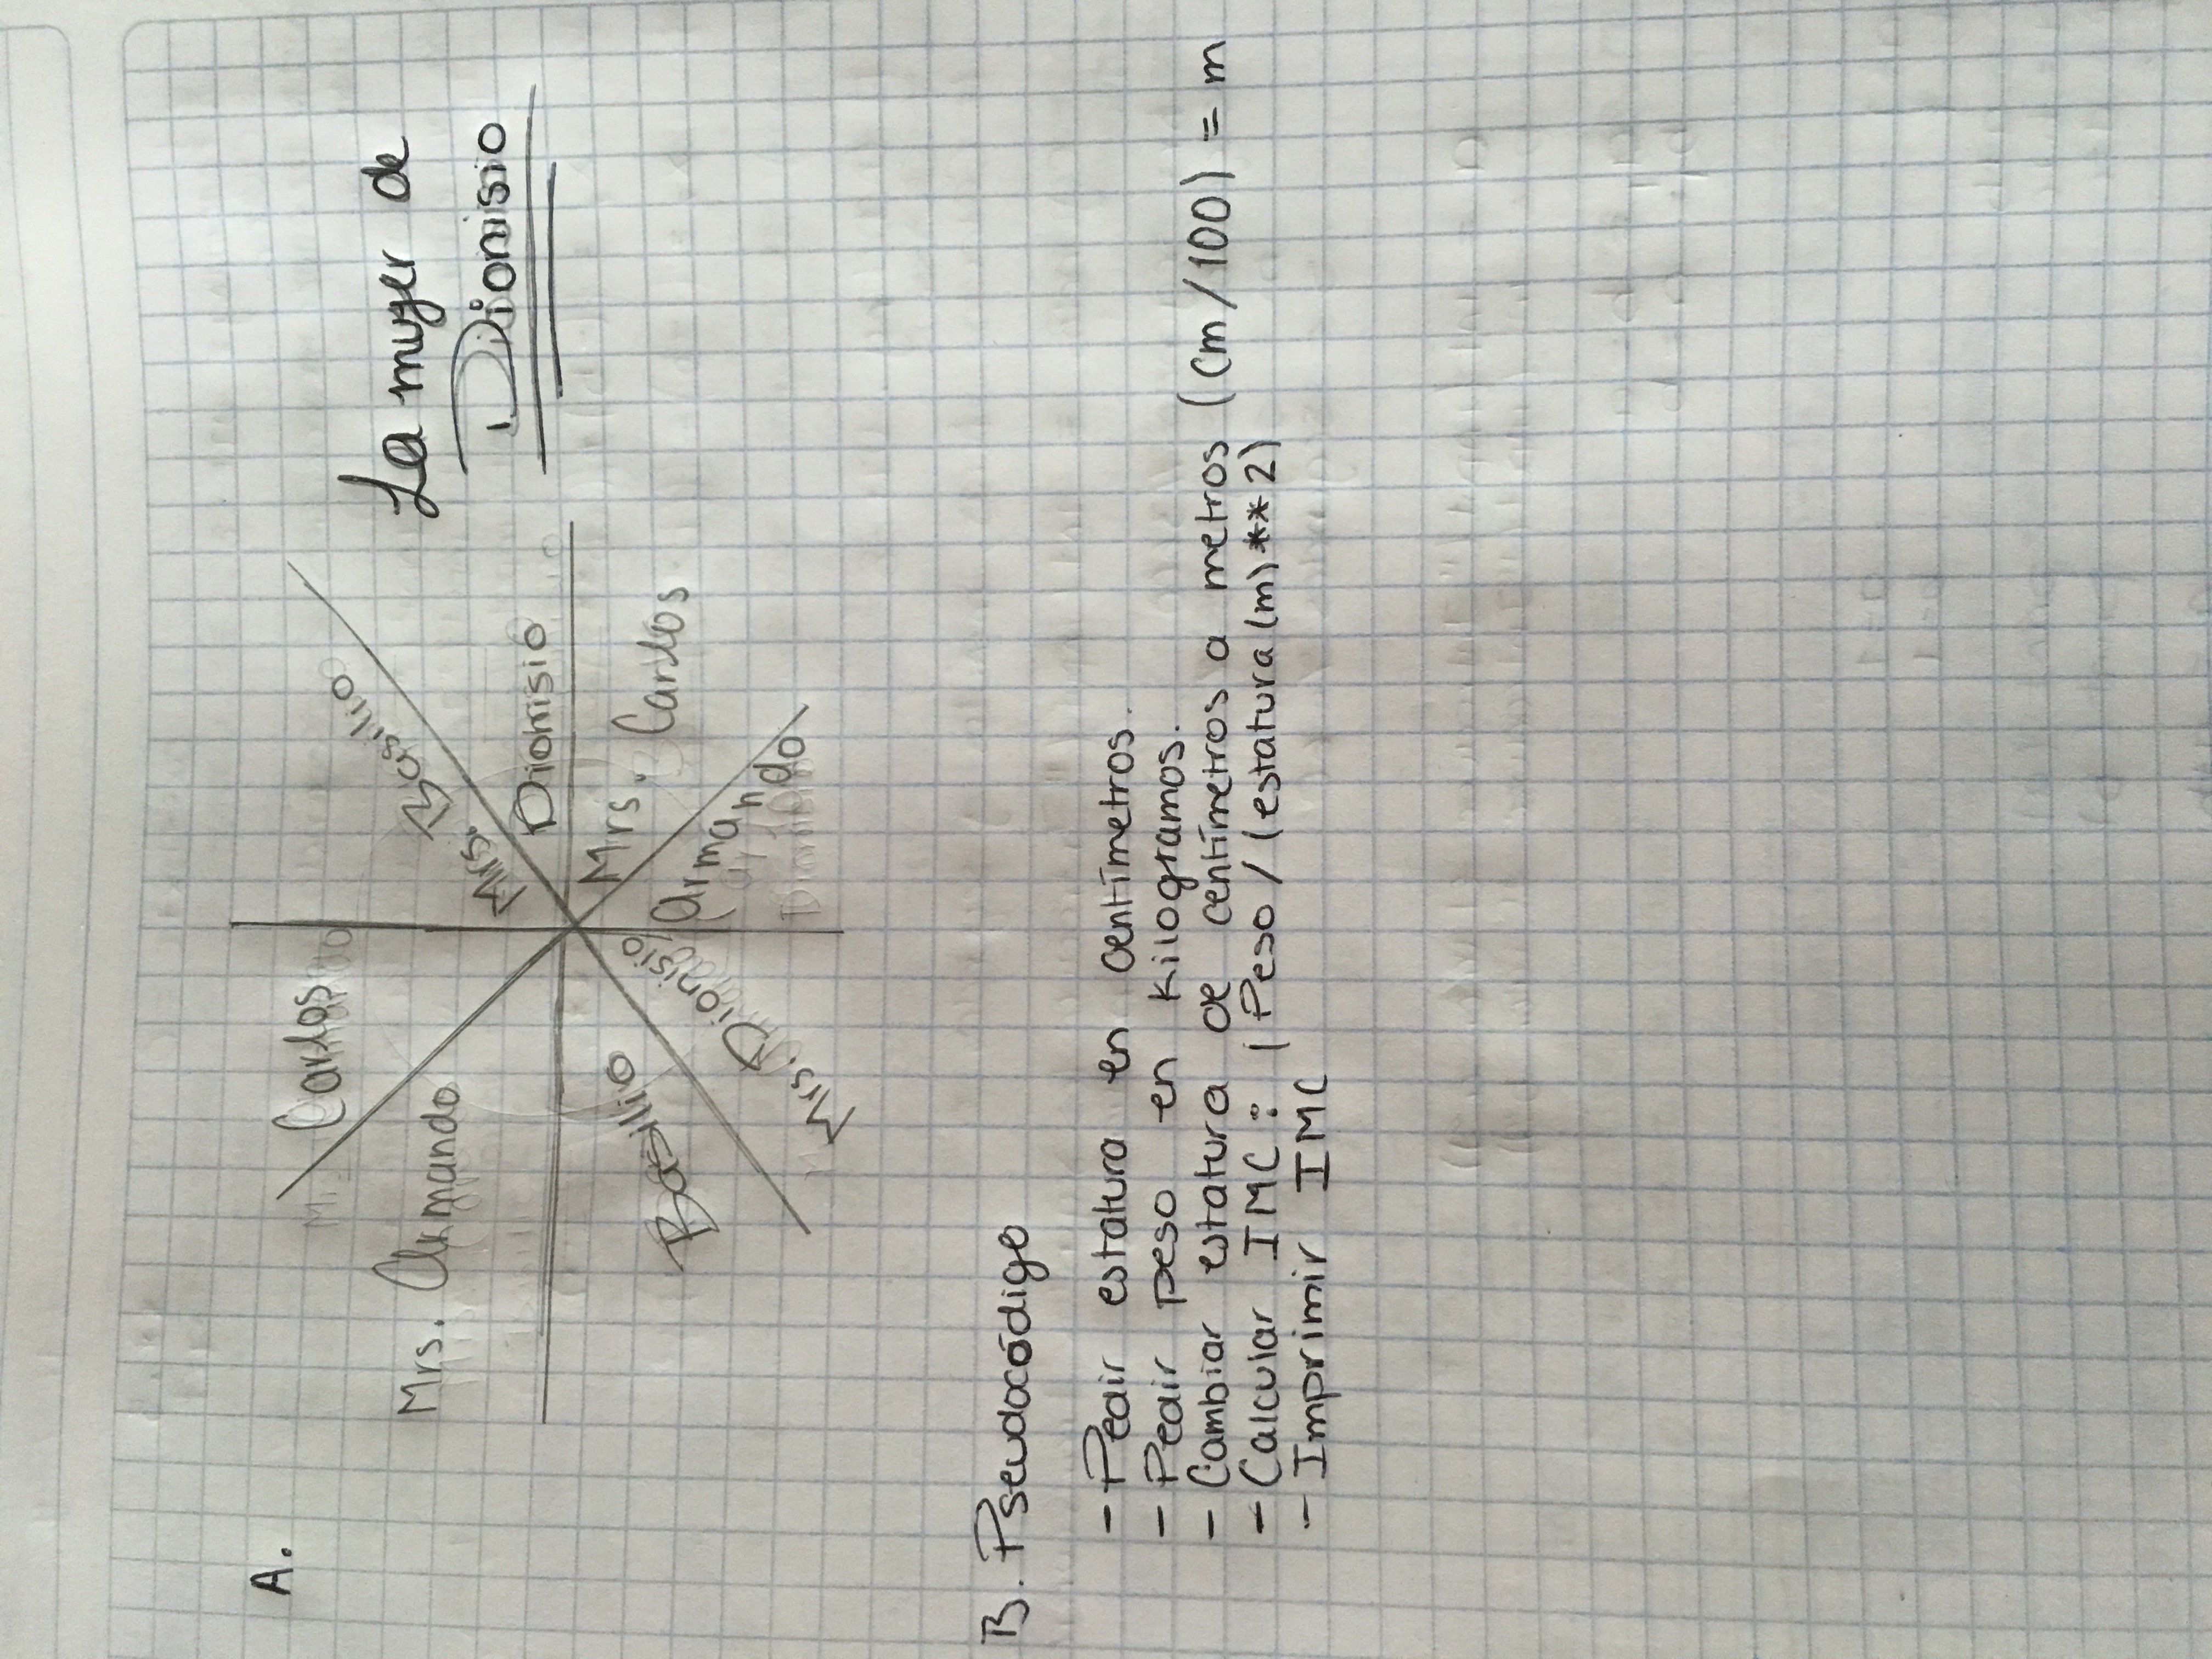 A.
Carlos
Mrs. Armando
Mrs. Basilio
Dionisio
La mujer de
Dionisio
Basilio
Mrs. Dionisio
Armando
Mrs. Carlos
B. Pseudocódigo
- Pedir estatura en centímetros.
- Pedir peso en kilogramos.
- Cambiar estatura de centímetros a metros (cm/100) = m
- Calcular IMC: (Peso/(estatura(m)**2)
- Imprimir IMC